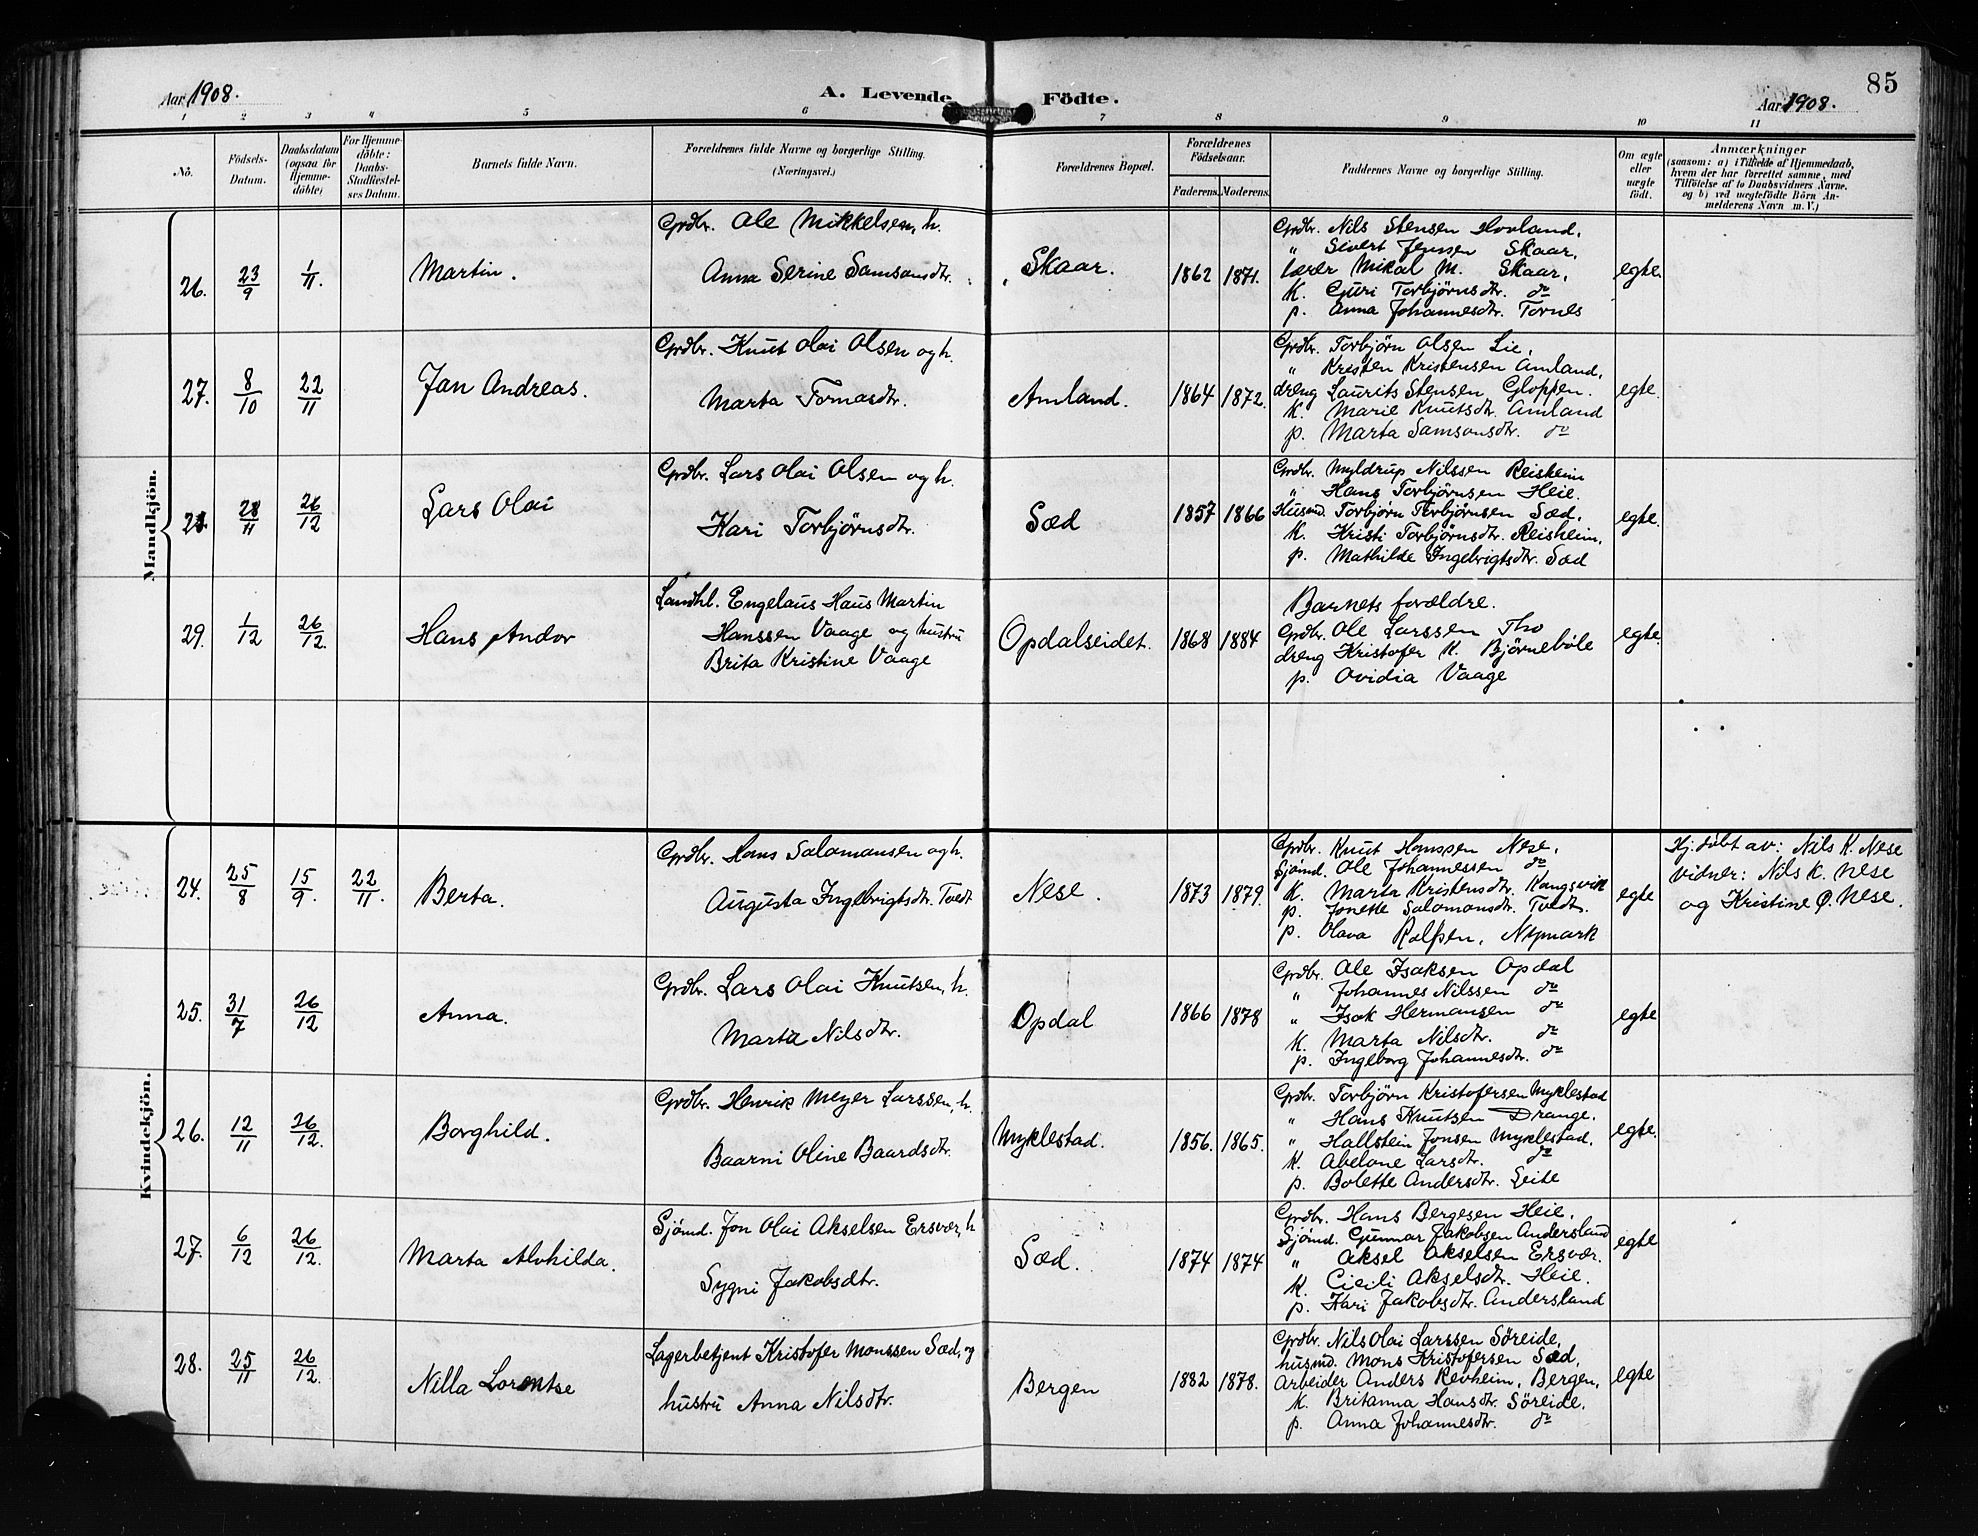 Aar 1908.
A. Levende Födte.
85
Aar 1908.
1 2 3 4 5 6 7 8 9 10 11
No.
Födsels-Datum.
Daabsdatum (ogsaa for Hjemme-döbte)
For Hjemme-döbte: Daabs-Stadfæstel-ses Datum.
Barnets fulde Navn.
Forældrenes fulde Navne og borgerlige Stilling. (Næringsvei.)
Forældrenes Bopæl.
Forældrenes Födselsaar.
Faderens. Moderens.
Faddernes Navne og borgerlige Stilling.
Om ægte eller uægte födt.
Anmærkninger
(saasom: a) i Tilfælde af Hjemmedaab,
hvem der har forrettet samme, med
Tilföielse af to Daabsvidners Navne.
og b) ved uægtefödte Börn An-
melderens Navn m. V.)
Mandkjön.
26. 23/9 1/11. Martin.
Grdbr. Ole Mikkelsen, h.
Anna Serine Samsonsdtr.
Skaar. 1862 1871.
Grdbr. Nils Stensen Hovland,
" Sivert Jensen Skaar,
Lærer Mikal M. Skaar,
K. Guri Torbjörnsdtr. do
p. Anna Johannesdtr. Tornes
egte.
27. 8/10 22/11 Jan Andreas.
Grdbr. Knut Olai Olsen og h.
Marta Tomasdtr.
Amland. 1864 1872.
Grdbr. Torbjørn Olsen Lie,
" Kristen Kristensen Amland,
dreng Laurits Stensen Gloppen.
K. Marie Knutsdtr. Amland
p. Marta Samsonsdtr. do
egte.
28. 28/11 26/12 Lars Olai
Grdbr. Lars Olai Olsen og h.
Kari Torbjørnsdtr.
Sæd 1857 1866
Grdbr. Myldrup Nilssen Reisheim
" Hans Torbjørnsen Heie.
Husmd. Torbjörn Torbjörnsen Sæd.
K. Kristi Torbjörnsdtr. Reisheim,
p. Mathilde Ingebrigtsdtr. Sæd
egte.
29. 1/12 26/12. Hans Andor
Landhl. Engelaus Haus Martin
Hanssen Vaage og hustru
Brita Kristine Vaage
Opdalseidet. 1868 1884
Barnets forældre.
Grdbr. Ole Larssen Tho
dreng Kristofer K. Björnebøle
p. Ovidia Vaage
egte.
Kvindekjön.
24. 25/8 15/9. 22/11. Berta.
Grdbr. Hans Salamonsen og h.
Augusta Ingebrigtsdtr. Tvedt
Nese. 1873 1879.
Grdbr. Knut Hanssen Nese,
Sjömd. Ole Johannessen do
K. Marta Kristensdtr. Kangsvik
p. Jonette Salomonsdtr. Tvedt.
p. Olava Rolfsen, Nymark
egte
Hj. döbt av: Nils K. Nese
Vidner: Nils K. Nese
og Kristine Ø. Nese.
25. 31/7 26/12 Anna.
Grdbr. Lars Olai Knutsen, h.
Marta Nilsdtr.
Opdal 1866 1878
Grdbr. Ole Isaksen Opdal
" Johannes Nilssen do
" Isak Hermansen do
K. Marta Nilsdtr. do
p. Ingeborg Johannesdtr. do
egte
26. 12/11 26/12. Borghild.
Grdbr. Henrik Meyer Larssen, h.
Baarni Oline Baardsdtr.
Myklestad. 1856. 1865.
Grdbr. Torbjörn Kristofersen Myklestad
" Hans Knutsen Drange.
" Hallstein Jonsen Myklestad,
K. Abelone Larsdtr. do
p. Bolette Andersdtr. Leite
egte.
27. 6/12 26/12. Marta Alvhilda.
Sjömd. Jon Olai Akselsen Ersvær, h
Sygni Jakobsdtr.
Sæd. 1874 1874
Grdbr. Hans Bergesen Heie,
Sjömd. Gunnar Jakobsen Andersland
" Aksel Akselsen Ersvær.
K. Cicili Akselsdtr. Heie.
p. Kari Jakobsdtr. Andersland
egte
28. 25/11 26/12. Nilla Lorentse
Lagerbetjent Kristofer Monssen Sæd, og
hustru Anna Nilsdtr.
Bergen 1882 1878.
Grdbr. Nils Olai Larssen Söreide,
husmd. Mons Kristofersen Sæd,
Arbeider Anders Revheim, Bergen,
K. Britanna Hansdtr. Söreide,
p. Anna Johannesdtr. do
egte